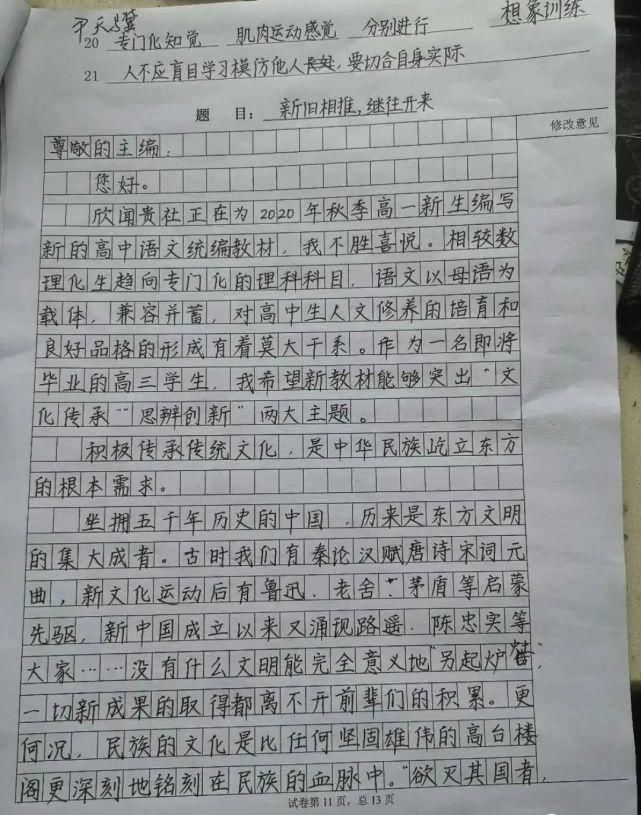 尹天与冀
20 专门化知觉 肌肉运动感觉 分别进行 想象训练
21 人不应盲目学习模仿他人长处,要切合自身实际
题 目: 新旧相推,继往开来
修改意见
尊敬的主编:
您好。
欣闻贵社正在为2020年秋季高一新生编写
新的高中语文统编教材,我不胜喜悦。相较数
理化生趋向专门化的理科科目,语文以母语为
载体,兼容并蓄,对高中生人文修养的培育和
良好品格的形成有着莫大干系。作为一名即将
毕业的高三学生,我希望新教材能够突出“文
化传承”“思辨创新”两大主题。
积极传承传统文化,是中华民族屹立东方
的根本需求。
坐拥五千年历史的中国,历来是东方文明
的集大成者。古时我们有秦论汉赋唐诗宋词元
曲,新文化运动后有鲁迅、老舍、茅盾等启蒙
先驱,新中国成立以来又涌现路遥、陈忠实等
大家……没有什么文明能完全意义地“另起炉灶”,
一切新成果的取得都离不开前辈们的积累。更
何况,民族的文化是比任何坚固雄伟的高台楼
阁更深刻地铭刻在民族的血脉中。“欲灭其国者,
试卷第11页,总13页